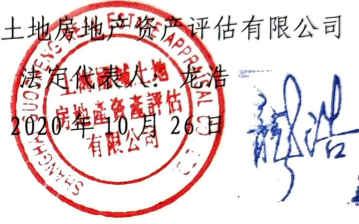 土地房地产资产评估有限公司
法定代表人：龙浩
2020年10月26日
土地
房地產資產評估
有限公司
龍浩